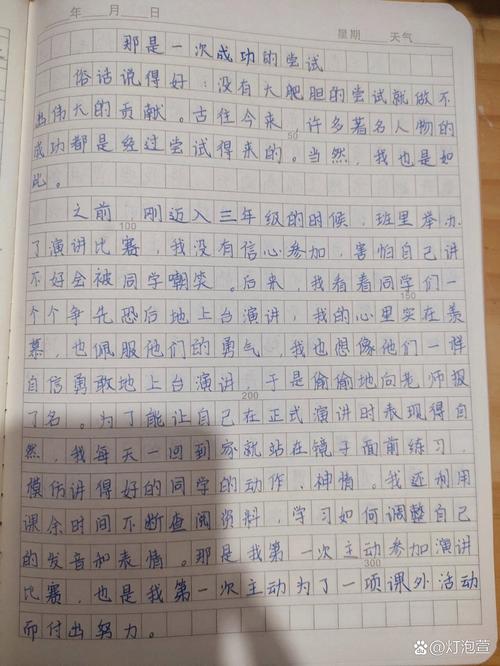 年 月 日 星期 天气
那是一次成功的尝试
俗话说得好：没有大肥胆的尝试就做不
出伟大的贡献。古往今来，许多著名人物的
50
成功都是经过尝试得来的。当然，我也是如
此。
之前，刚迈入三年级的时候，班里举办
100
了演讲比赛，我没有信心参加，害怕自己讲
不好会被同学嘲笑。后来，我看着同学们一
150
个个争先恐后地上台演讲，我的心里实在羡
慕，也佩服他们的勇气，我也想像他们一样
自信勇敢地上台演讲，于是偷偷地向老师报
200
了名。为了能让自己在正式演讲时表现得自
然，我每天一回到家就站在镜子面前练习，
模仿讲得好的同学的动作、神情。我还利用
课余时间不断查阅资料，学习如何调整自己
的发音和表情。那是我第一次主动参加演讲
300
比赛，也是我第一次主动为了一项课外活动
而付出努力。
Baidu百科@灯泡萱